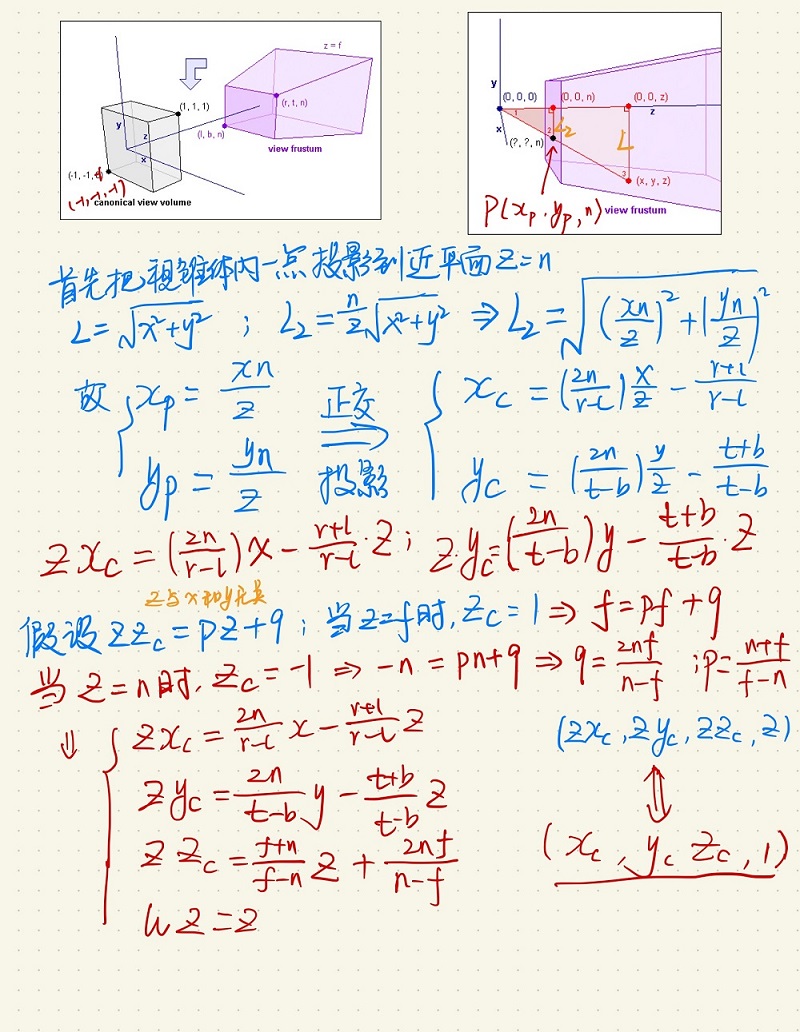 z = f
(1, 1, 1)
(r, t, n)
y
z
x
(l, b, n)
view frustum
(-1, -1,
(-1,-1,-1)
canonical view volume
y
(0, 0, 0)
(0, 0, n)
(0, 0, z)
z
1
x
2
L₂
L
(?, ?, n)
3
(x, y, z)
P(xₚ, yₚ, n)
view frustum
首先把视锥体内一点投影到近平面 z=n
L=√(x²+y²) ; L₂=n/z √(x²+y²) ⇒ L₂=√((xn/z)²+(yn/z)²)
故 { xₚ = xn/z 正交 ⇒ { x_c = (2n/(r-l)) x/z - (r+l)/(r-l)
yₚ = yn/z 投影 y_c = (2n/(t-b)) y/z - (t+b)/(t-b)
z x_c = (2n/(r-l)) x - (r+l)/(r-l) · z ; z·y_c = (2n/(t-b)) y - (t+b)/(t-b) · z
z与x和y无关
假设 z z_c = pz+q ; 当z=f时, z_c = 1 ⇒ f=pf+q
当 z=n时, z_c = -1 ⇒ -n = pn+q ⇒ q = 2nf/(n-f) ; p = (n+f)/(f-n)
⇓ { z x_c = 2n/(r-l) x - (r+l)/(r-l) z
(zx_c, zy_c, zz_c, z)
z y_c = 2n/(t-b) y - (t+b)/(t-b) z
⇕
z z_c = (f+n)/(f-n) z + 2nf/(n-f)
(x_c, y_c z_c, 1)
wz = z